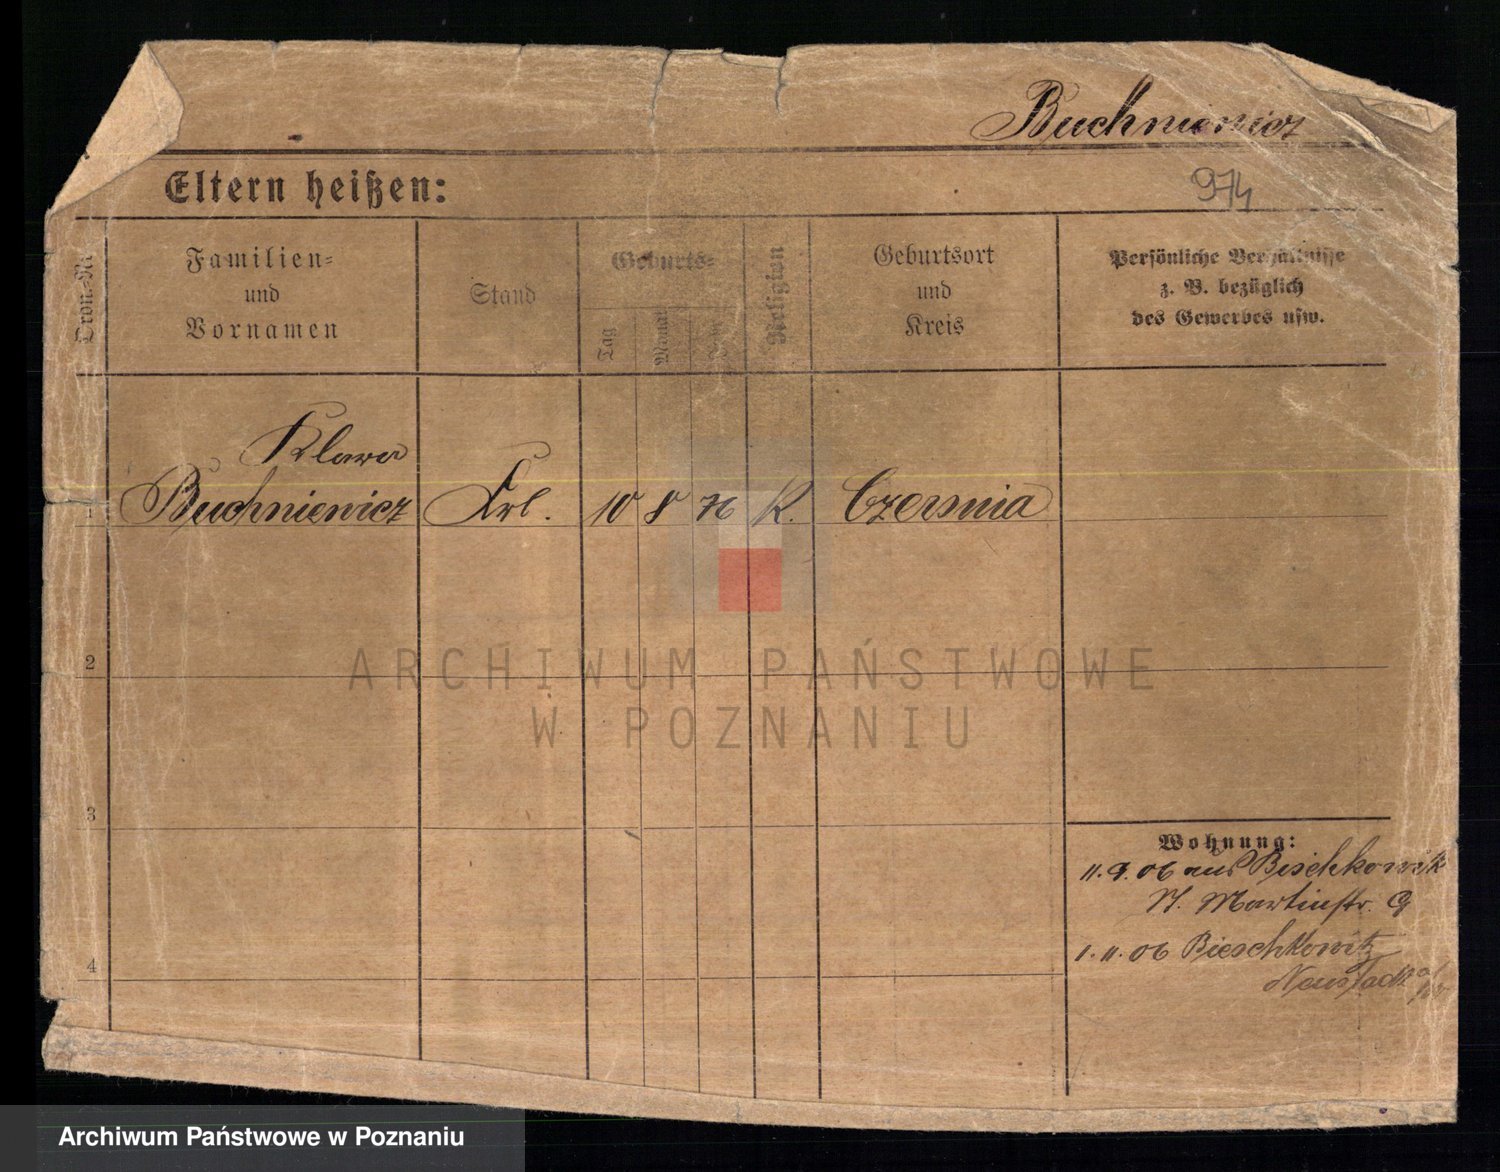 Buchniewicz
974
Eltern heißen:
Ordn.-Nr.
Familien-
und
Vornamen
Stand
Geburts-
Tag
Monat
Jahr
Religion
Geburtsort
und
Kreis
Persönliche Verhältnisse
z. B. bezüglich
des Gewerbes usw.
Klara
1 Buchniewicz Frl. 10 8 76 K. Czermin
2
3
4
Wohnung:
11.9.06 aus Bieschkowitz
St. Martinstr. 9
1.11.06 Bieschkowitz
Neustadt
ARCHIWUM PAŃSTWOWE
W POZNANIU
Archiwum Państwowe w Poznaniu